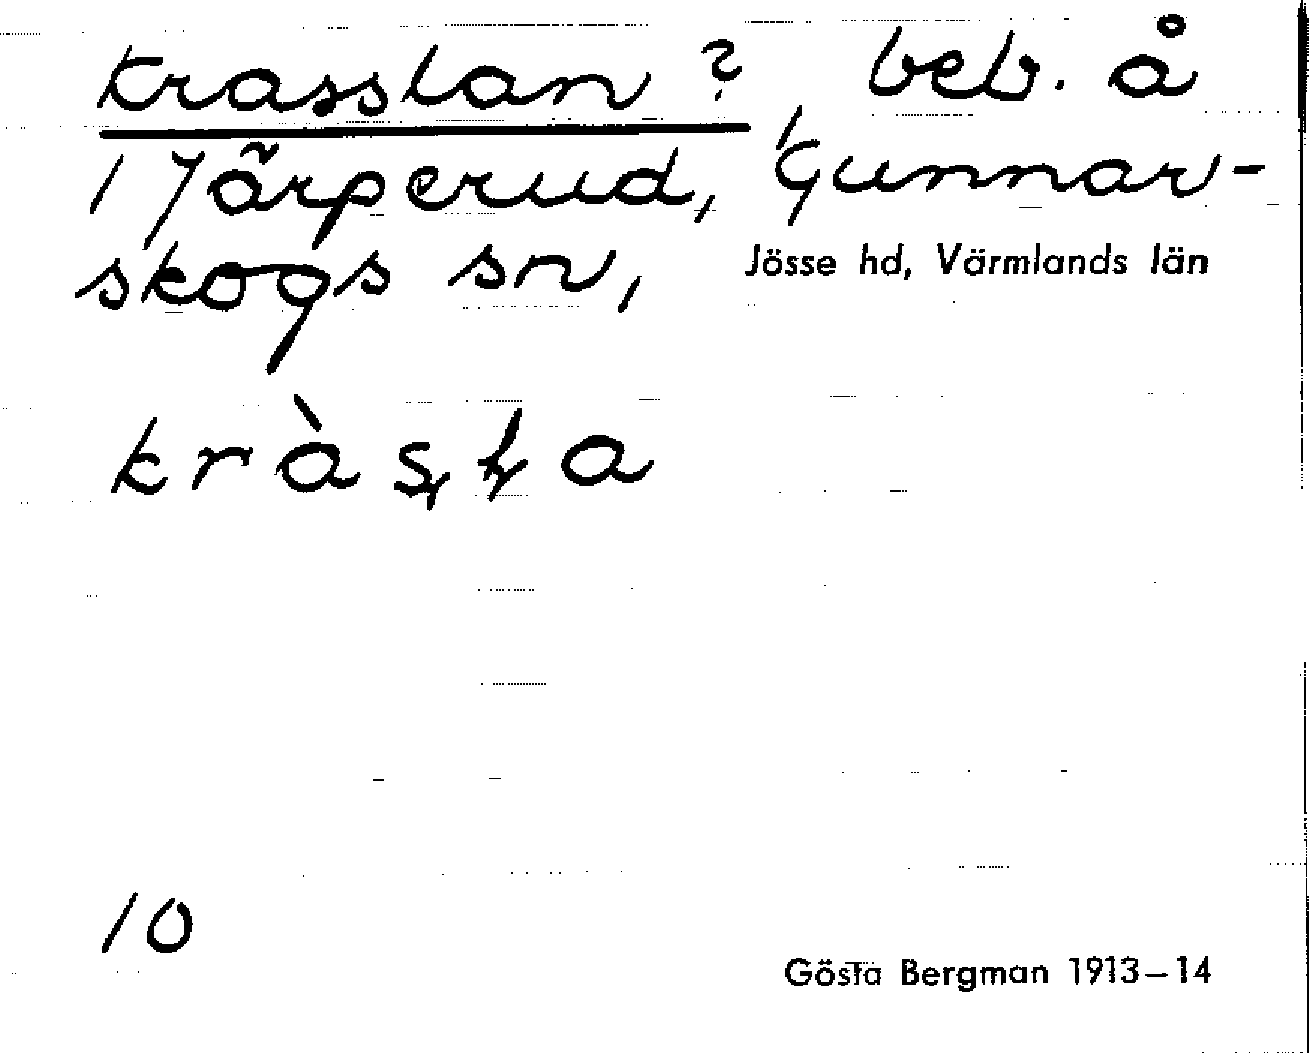 Krasslan ? beb. å
1 Järperud, Gunnar-
skogs sn, Jösse hd, Värmlands län
10
Gösta Bergman 1913–14